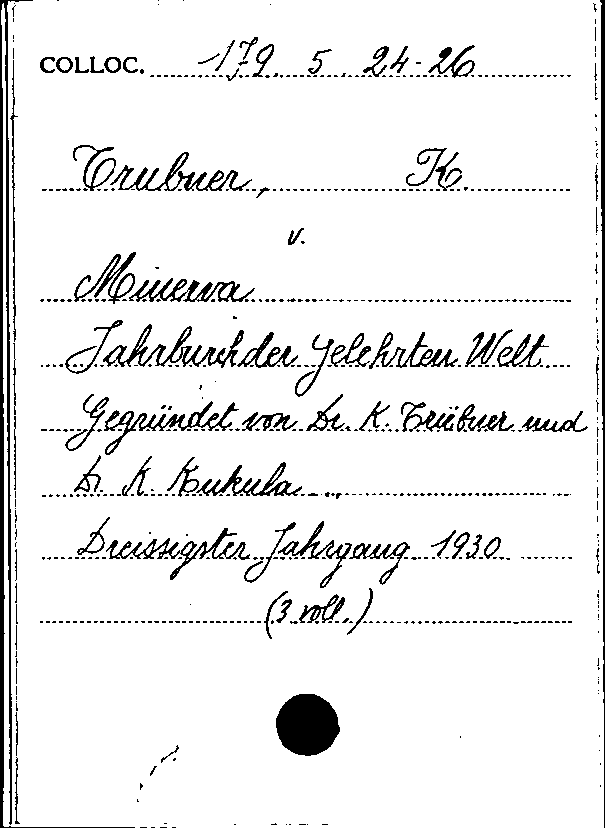 COLLOC. 179. 5. 24-26
Trubner, K.
v.
Minerva
Jahrbuch der gelehrten Welt
Gegründet von Dr. K. Trübner und
Dr. K. Kukula ...
Dreissigster Jahrgang 1930
(3 voll.)